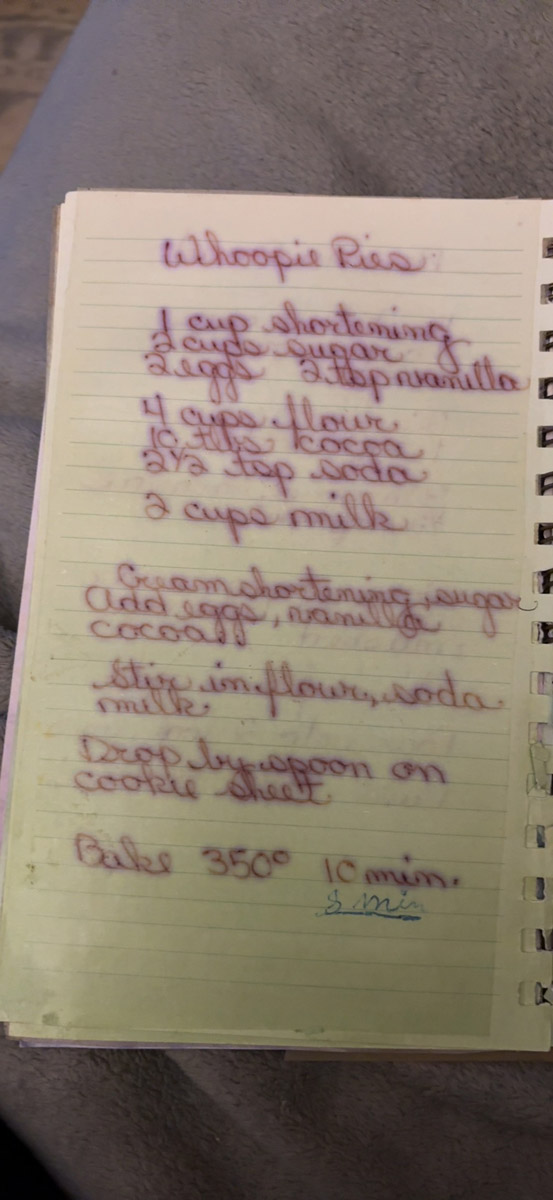 Whoopie Pies
1 cup shortening
2 cups sugar
2 eggs 2 tsp vanilla
4 cups flour
10 tbs cocoa
2 1/2 tsp soda
2 cups milk
Cream shortening, sugar
Add eggs, vanilla
cocoa
Stir in flour, soda
milk.
Drop by spoon on
cookie sheet
Bake 350° 10 min.
8 min